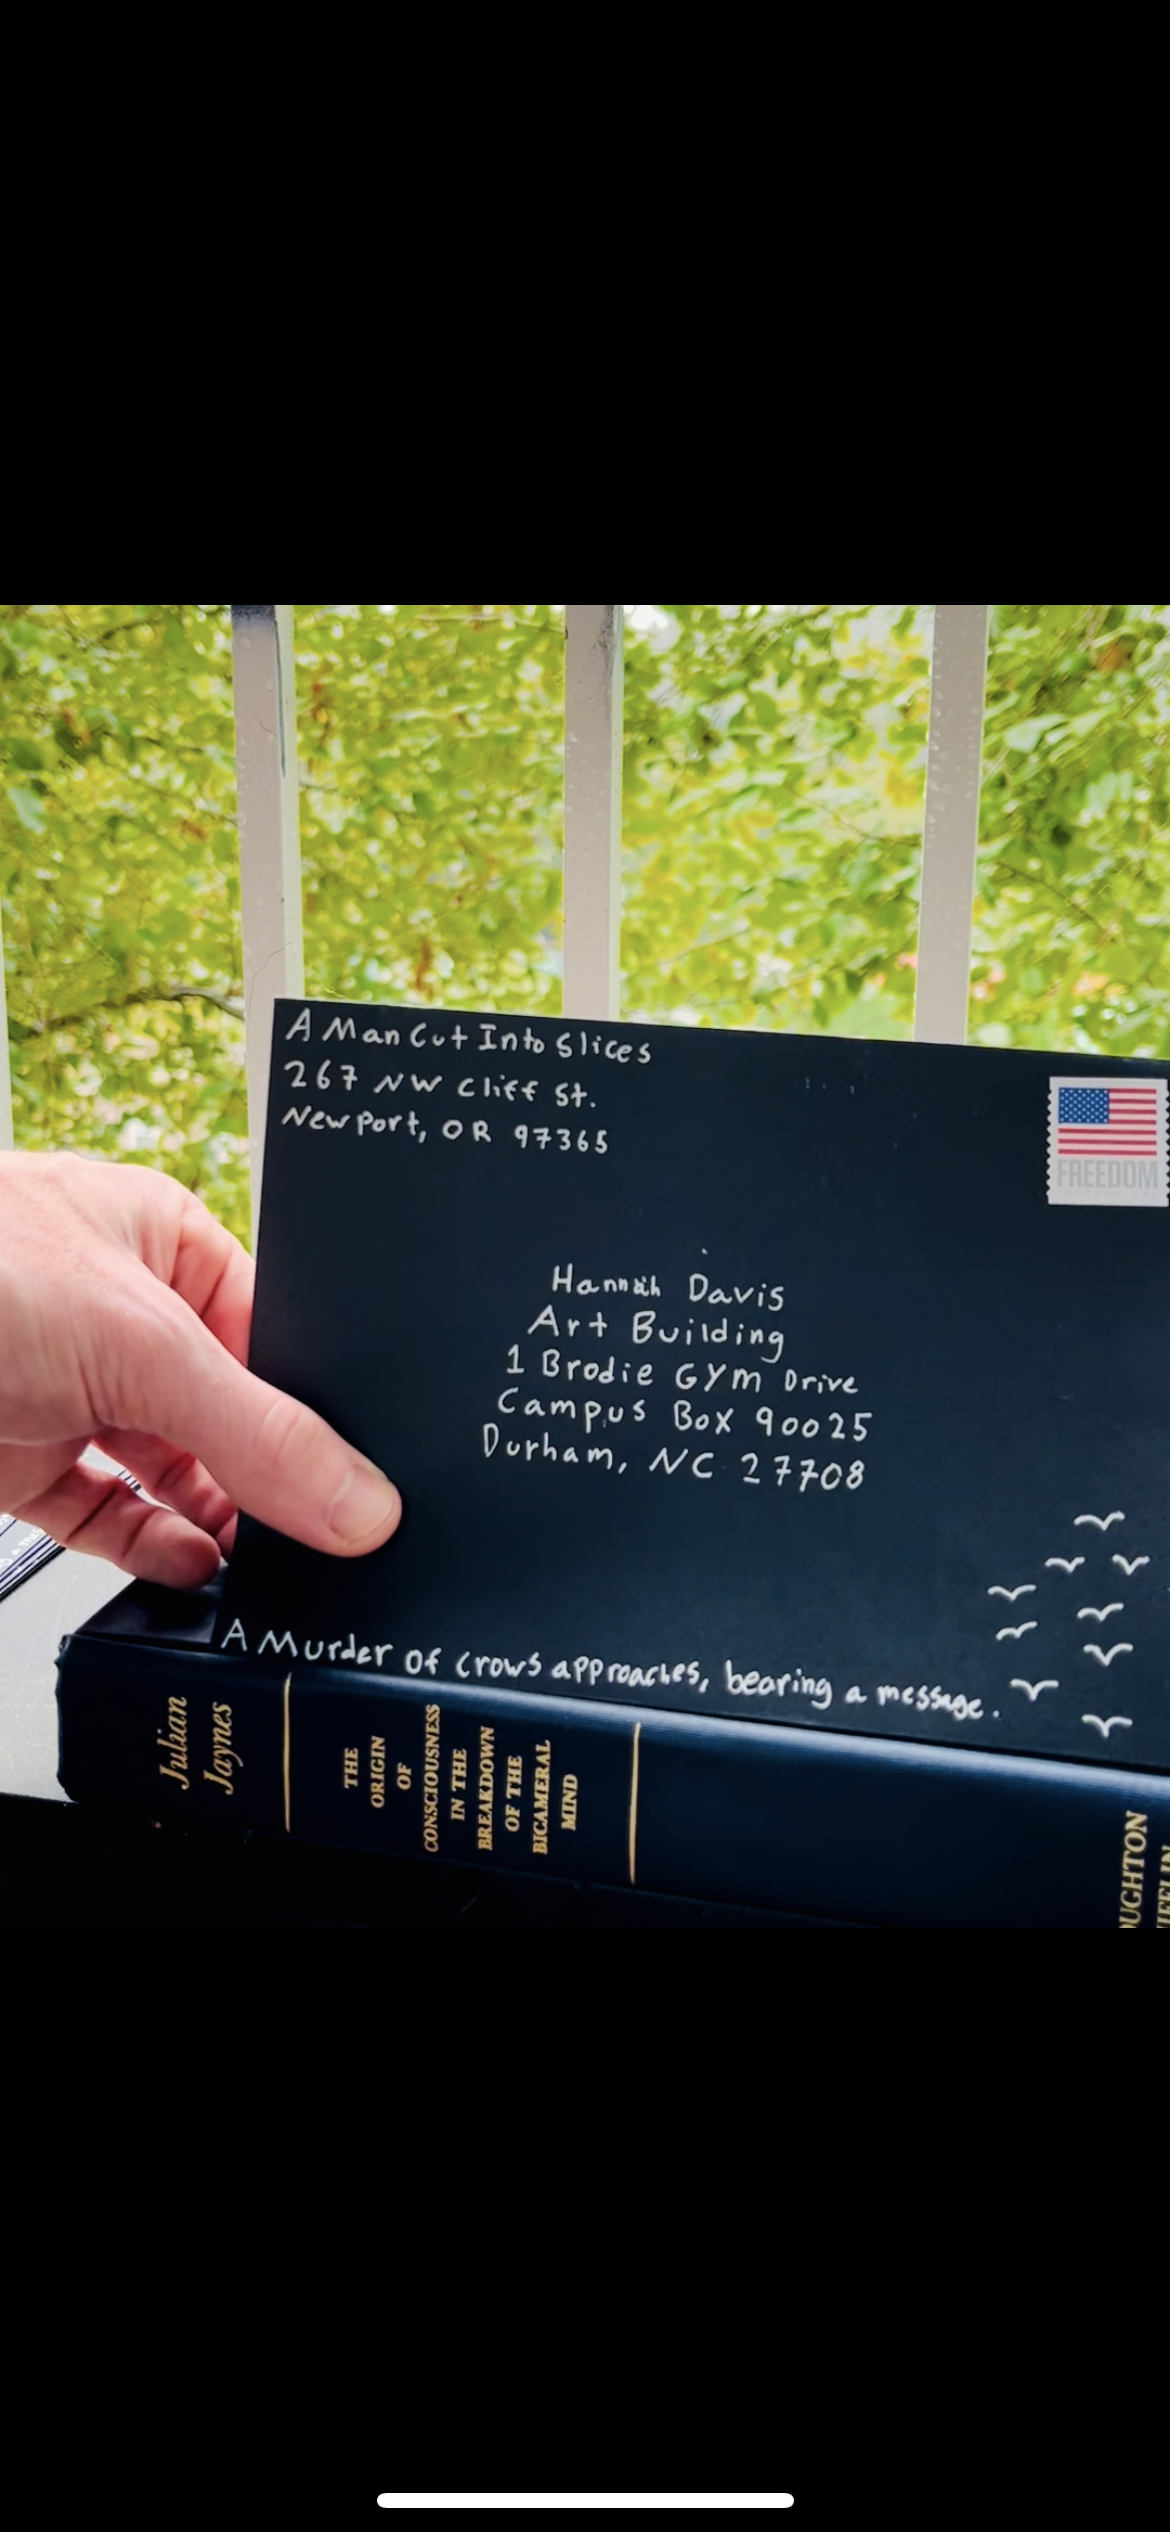 A Man Cut Into Slices
267 NW Cliff St.
Newport, OR 97365
FREEDOM
Hannah Davis
Art Building
1 Brodie GYm Drive
Campus Box 90025
Durham, NC 27708
A Murder of crows approaches, bearing a message.
Julian
Jaynes
THE
ORIGIN
OF
CONSCIOUSNESS
IN THE
BREAKDOWN
OF THE
BICAMERAL
MIND